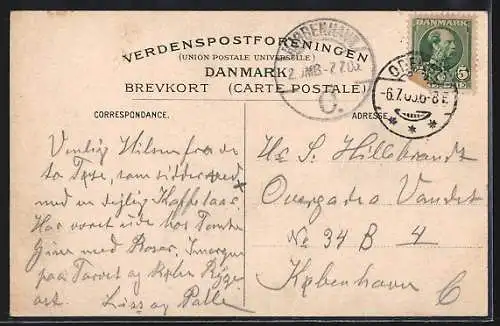 VERDENSPOSTFORENINGEN
(UNION POSTALE UNIVERSELLE)
DANMARK
BREVKORT (CARTE POSTALE)
KJØBENHAVN
2.OMB-7.7.05
O.
DANMARK
5
ODENSE
-6.7.05.6-8E
CORRESPONDANCE.
ADRESSE
Venlig Hilsen fra de
to Tøse, som sidder ved
med en dejlig Kaffetaar.
Har voret ude hos Tante
med Roser. Imorgen
paa Torvet og Ryge
ost. Liss og Palle
S. Hillebrandt
Overgaden Vandet
No 34 B 4
København C